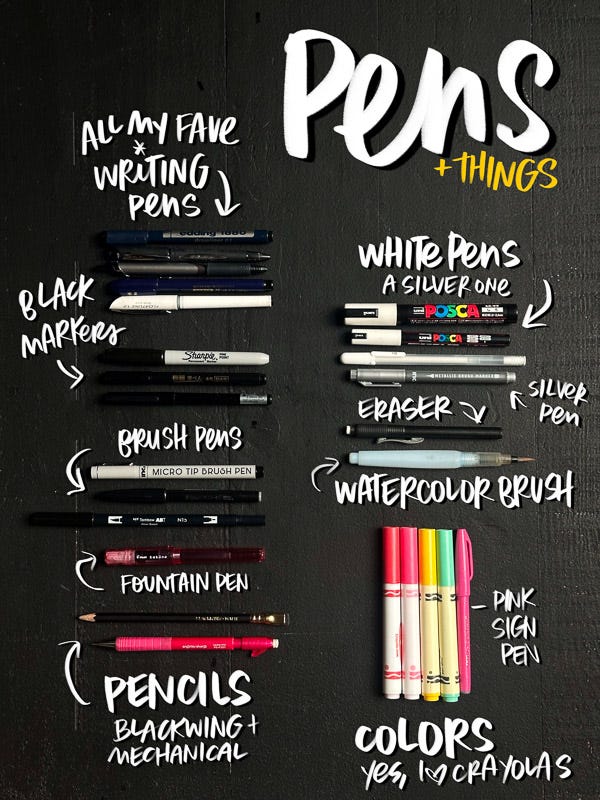 Pens
+ THINGS
ALL MY FAVE
*
WRITING
pens
BLACK
MARKERS
Sharpie
BRUSH PENS
MICRO TIP BRUSH PEN
Tombow ABT N15
FOUNTAIN PEN
PENCILS
BLACKWING +
MECHANICAL
WHITE Pens
A SILVER ONE
uni POSCA
uni POSCA
METALLIC BRUSH MARKER
SILVER
pen
ERASER
WATERCOLOR BRUSH
PINK
SIGN
PEN
COLORS
yes, I ♡ CRAYOLAS